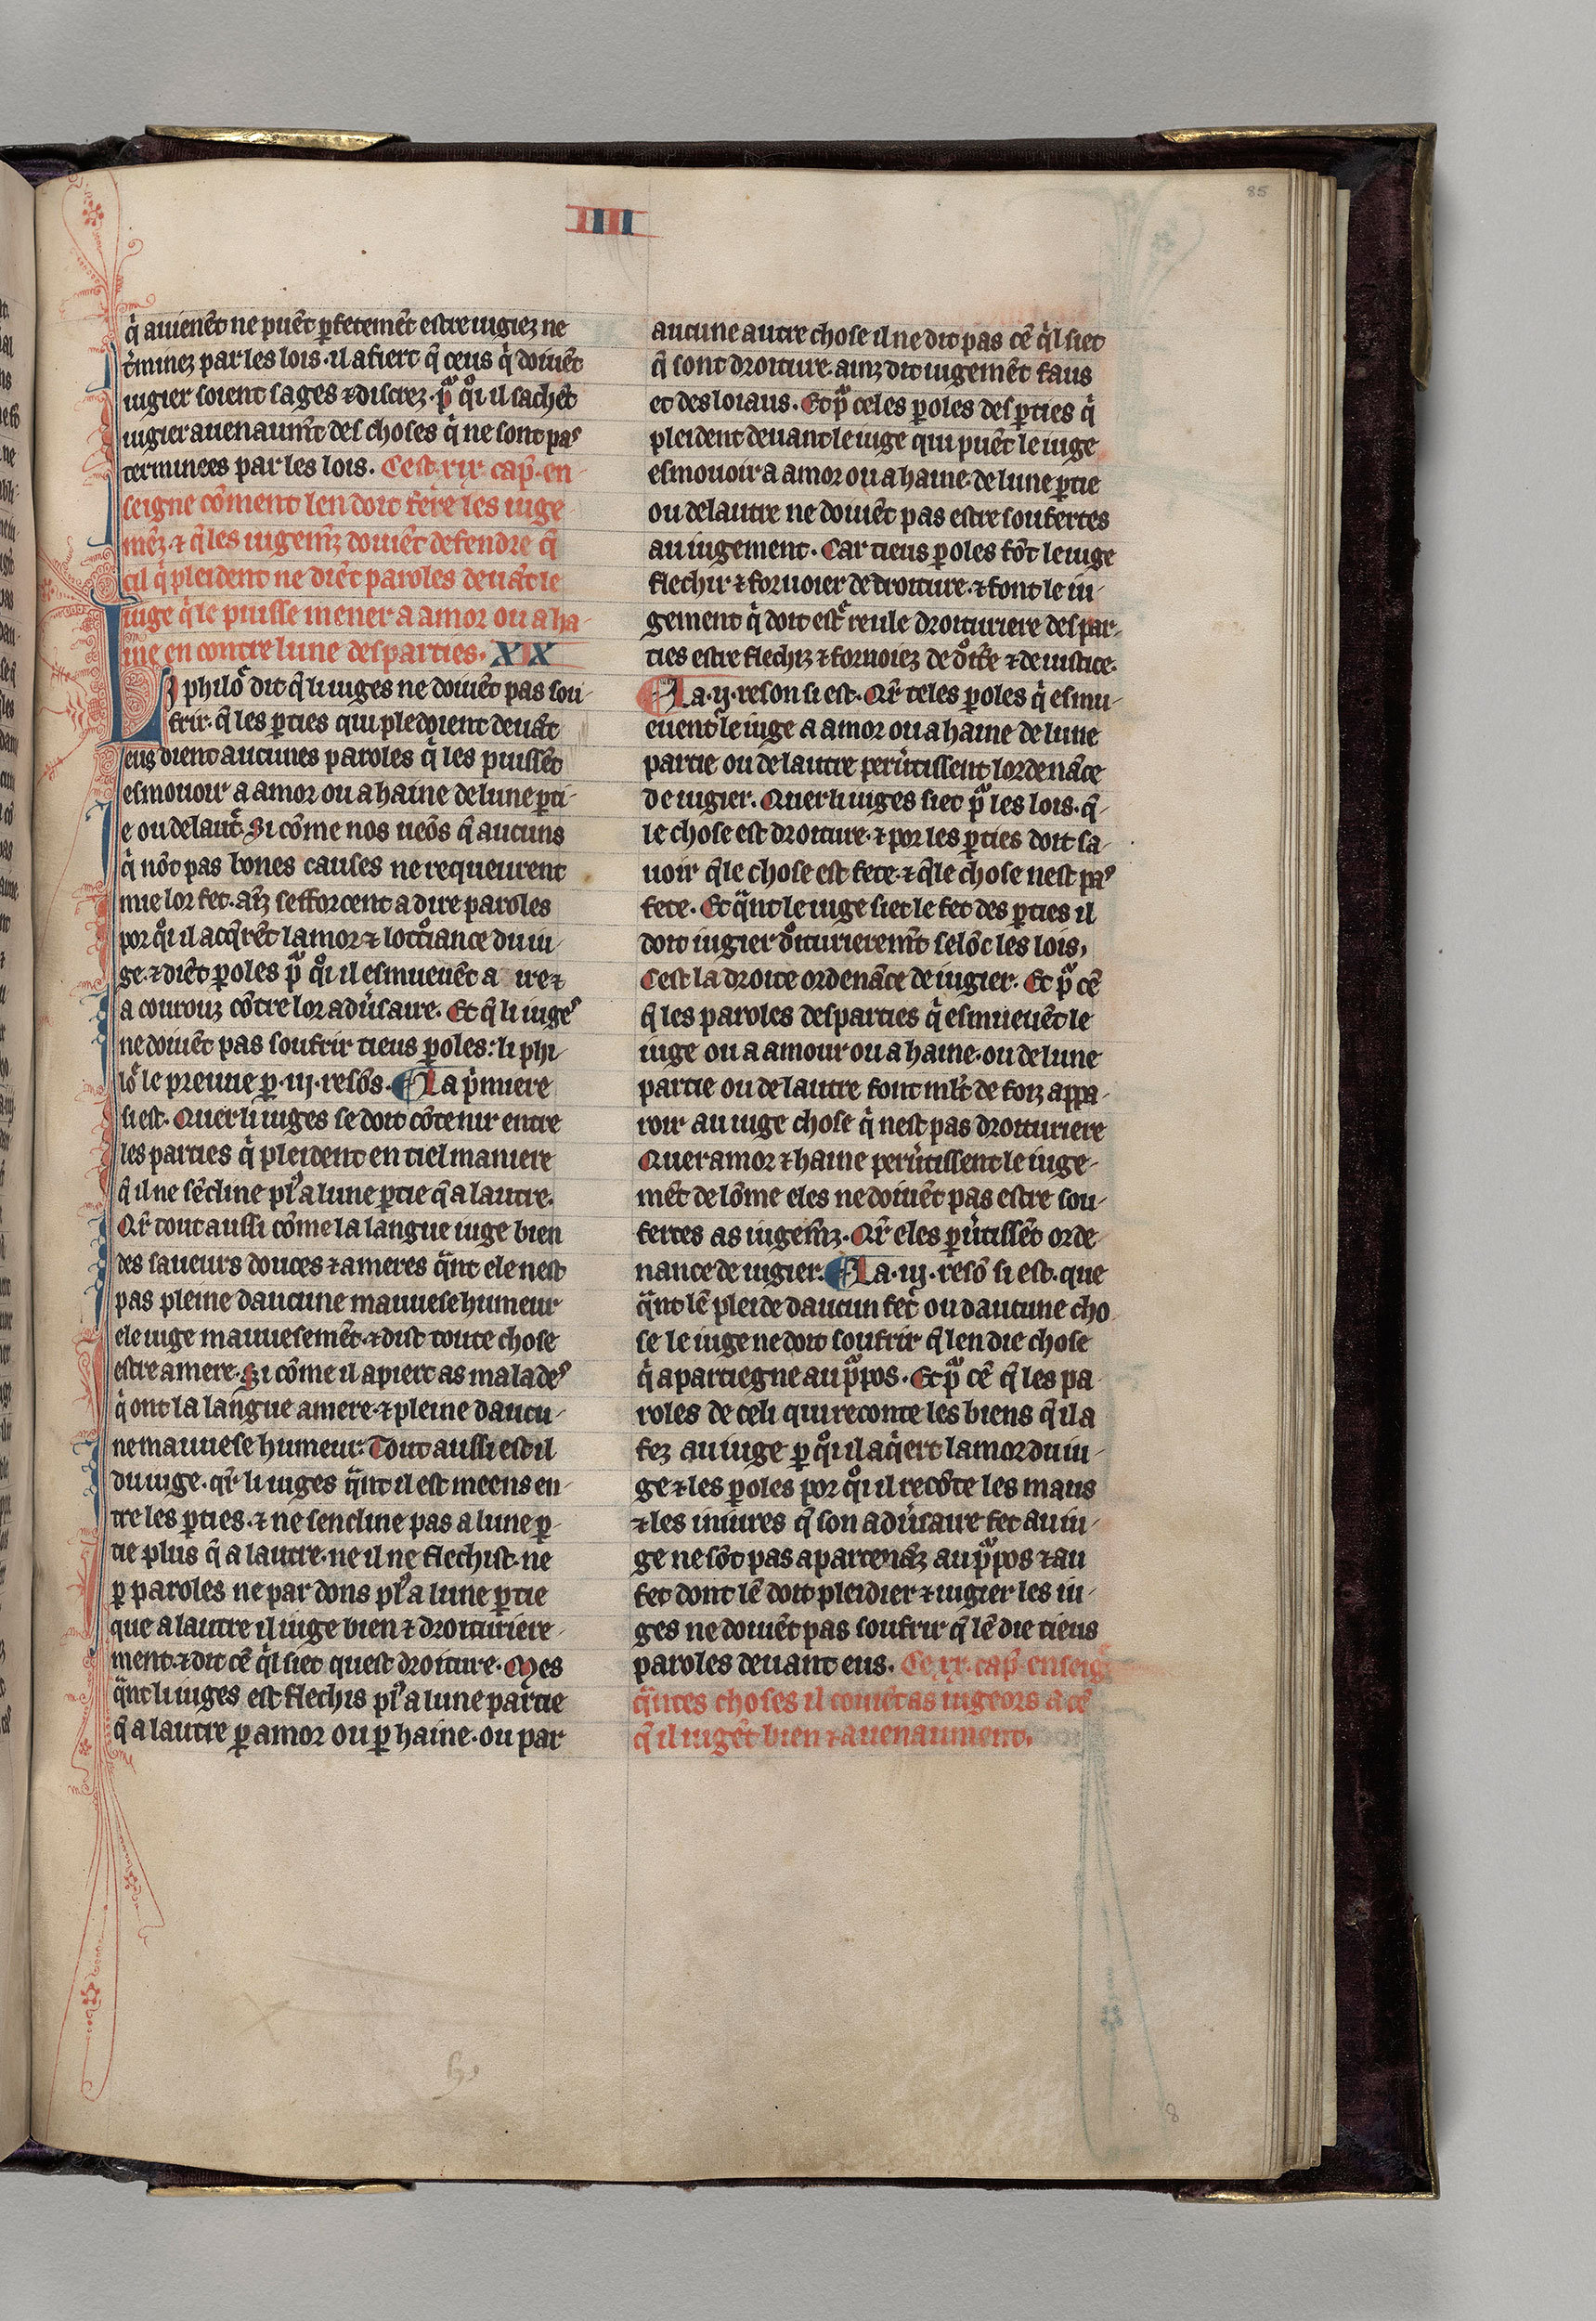 85
IIII
q̇ auienēt ne puēt ꝑfetemēt estre iugiez ne
t̾minez par les lois · il afiert q̄ ceus q̇ doiuēt
iugier soient sages ⁊ discrez · pͣ qͦi il sachēt
iugier auenaum̄t des choses q̇ ne sont pas
terminees par les lois . Cest · xix · cap̄ · en-
seigne cōment len doit fere les iuge
mēz · ⁊ q̄ les iugem̄z doiuēt defendre q̄
cil q̇ pleident ne diēt paroles deuāt le
iuge q̇ le puisse mener a amor ou a ha-
ine en contre lune des parties . XIX
LI philō dit q̄ li iuges ne doiuēt pas sou-
frir · q̄ les ꝑties qui pledoient deuāt
eus dient aucunes paroles q̇ les puissēt
esmouoir a amor ou a haine de lune ꝑti-
e ou de laut̄ . Si cōme nos ueōs q̄ aucuns
q̇ nōt pas bones causes ne requeurent
mie lor fet · aīz sefforcent a dire paroles
por qͦi il acq̄rēt lamor ⁊ lottͦiance du iu-
ge · ⁊ diēt ꝑoles pͣ qͦi il esmeuēt a ire ⁊
a courouz cōtre lor adu̾saire . Et q̄ li iuges
ne doiuēt pas soufrir tieus ꝑoles : li phi-
lō le preuue ꝑ · iij · resōs . ¶ La ṗmiere
si est · Quer li iuges se doit cōtenir entre
les parties q̇ pleident en tiel maniere
q̄ il ne sēcline plꝰ a lune ꝑtie q̄ a lautre .
Qr̄ tout aussi cōme la langue iuge bien
des saueurs douces ⁊ ameres qͣnt ele nest
pas pleine daucune mauuese humeur
ele iuge mauuesemēt · ⁊ dist toute chose
estre amere · Si cōme il apiert as malades
q̇ ont la langue amere · ⁊ pleine daucu-
ne mauuese humeur : Tout aussi est il
du iuge · qr̄ li iuges qͣnt il est meens en-
tre les ꝑties · ⁊ ne sencline pas a lune ꝑ-
tie plus q̄ a lautre · ne il ne flechist · ne
ꝑ paroles ne par dons plꝰ a lune ꝑtie
que a lautre il iuge bien ⁊ droituriere-
ment · ⁊ dit cē q̇l siet quest droiture · Mes
qͣnt li iuges est flechis plꝰ a lune partie
q̄ a lautre ꝑ amor ou ꝑ haine · ou par
aucune autre chose il ne dit pas cē q̇l siet
q̄ sont droiture · ainz dit iugemēt faus
et desloiaus . Et pͣ celes ꝑoles des ꝑties q̇
pleident deuant le iuge qui puēt le iuge
esmouoir a amor ou a haine · de lune ꝑtie
ou de lautre ne doiuēt pas estre soufertes
au iugement . Car tieus ꝑoles fōt le iuge
flechir ⁊ foruoier de droiture · ⁊ font le iu-
gement q̇ doit est̄ reule droituriere des par-
ties estre flechiz ⁊ foruoiez de dͦit̄e ⁊ de iustice .
¶ La · ij · reson si est · Qr̄ teles ꝑoles q̇ esmu-
euent le iuge a amor ou a haine de lune
partie ou de lautre peru̾tissent lordenāce
de iugier . Quer li iuges siet pͣ les lois · q̄-
le chose est droiture · ⁊ por les ꝑties doit sa-
uoir q̄le chose est fete · ⁊ q̄le chose nest pas
fete . Et qͣnt le iuge siet le fet des ꝑties il
doit iugier dͦiturierem̄t selōc les lois ,
Cest la droite ordenāce de iugier . Et pͣ cē
q̄ les paroles des parties q̇ esmueuēt le
iuge ou a amour ou a haine · ou de lune
partie ou de lautre font ml̄t de foiz appa-
roir au iuge chose q̇ nest pas droituriere
Quer amor ⁊ haine peru̾tissent le iuge-
mēt de lōme eles ne doiuēt pas estre sou-
fertes as iugem̄z . Qr̄ eles ꝑu̾tissēt orde-
nance de iugier . ¶ La · iij · resō si est · que
qͣnt lē pleide daucun fet ou daucune cho
se le iuge ne doit soufrir q̄ len die chose
q̇ apartiegne au pͣpos . Et pͣ cē q̄ les pa
roles de celi qui reconte les biens q̄ il a
fez au iuge ꝑ qͦi il aq̇ert lamor du iu-
ge ⁊ les ꝑoles por qͦi il recōte les maus
⁊ les iniures q̄ son adu̾saire fet au iu-
ge ne sōt pas apartenāz au pͣpos ⁊ au
fet dont lē doit pleidier ⁊ iugier les iu-
ges ne doiuēt pas soufrir q̄ lē die tieus
paroles deuant eus . Ce · xx · cap̄ · enseig
qͣntes choses il couiēt as iugeors a cē
q̄ il iugēt bien ⁊ auenaument .
8